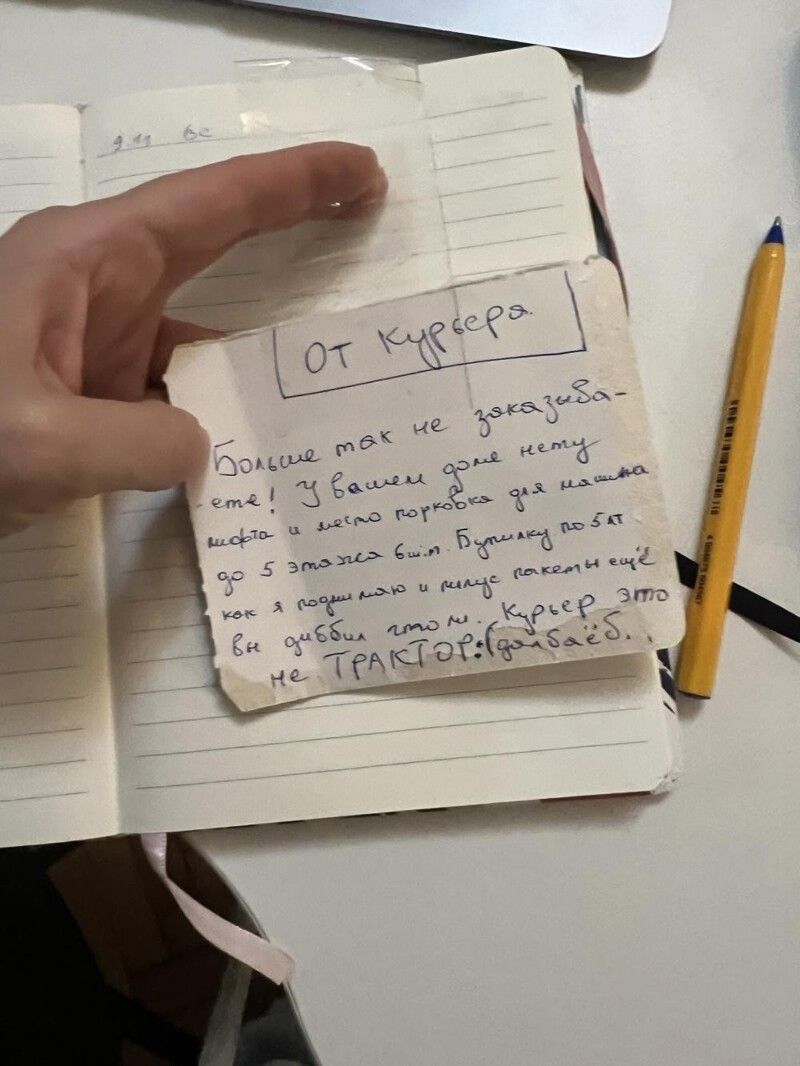 9.11 ВС
От Курьера
Больше так не заказыва-
ете! У вашем доме нету
лифта и место порковка для машина
до 5 этажа 6 шт. Бутилку по 5 лт
как я поднимаю и плюс пакеты ещё
вы диббил штоли. Курьер это
не ТРАКТОР:(далбаёб..